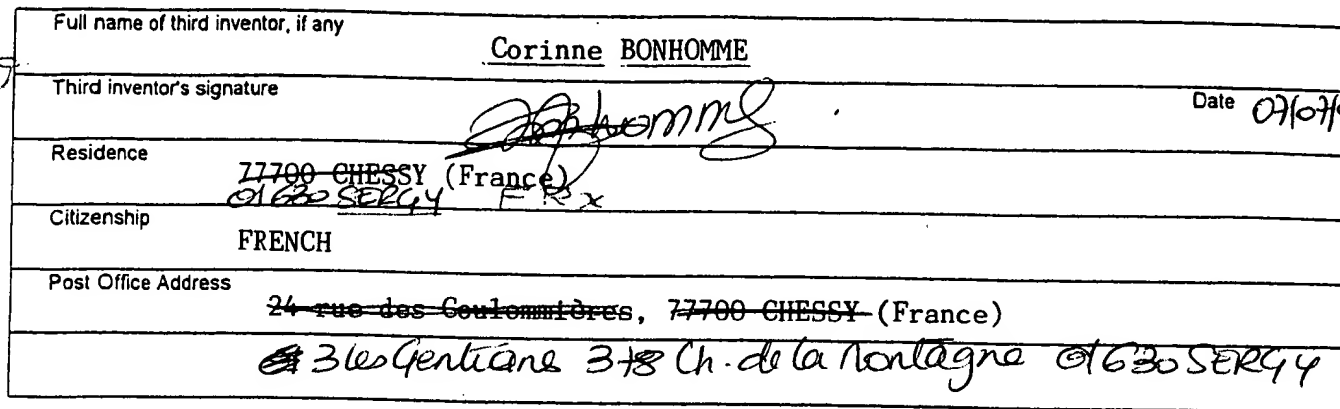 Full name of third inventor, if any
Corinne BONHOMME
Third inventor's signature
Date 07/07/
Residence
77700 CHESSY (France)
01630 SERGY FRX
Citizenship
FRENCH
Post Office Address
24 rue des Coulommières, 77700 CHESSY (France)
3 les Gentiane 378 Ch. de la Montagne 01630 SERGY